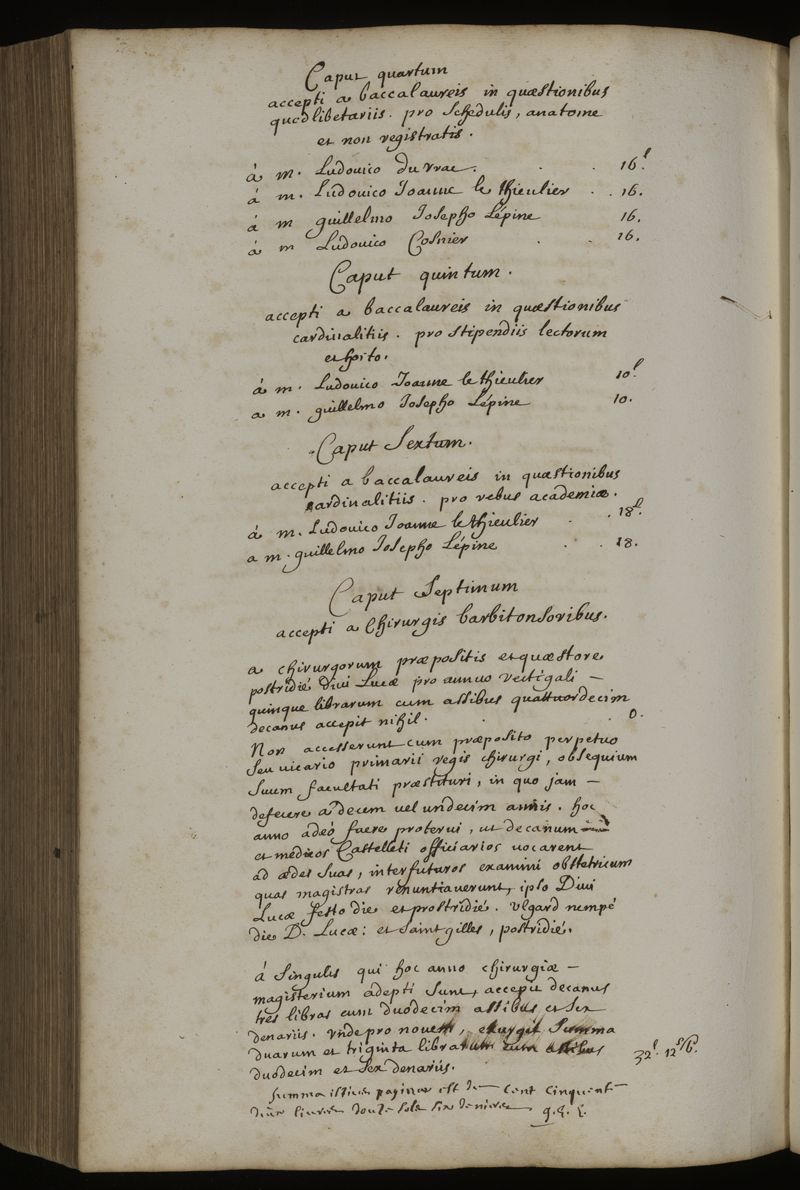 Caput quartum
accepti a baccalaureis in quæstionibus
quodlibetariis. pro schedulis, anatome
et non registratis.
à m. Ludouico du vrac. . . 16.l
à m. Ludouico Joanne le thieulier . . 16.
à m guillelmo Josepho Lépine 16.
à m Ludouico Cosnier . . 16.
Caput quintum.
accepti a baccalaureis in quæstionibus
cardinalitiis. pro stipendiis lectorum
et horto.
à m. Ludouico Joanne le thieulier 10.l
a m. guillelmo Josepho Lépine 10.
Caput Sextum.
accepti a baccalaureis in quæstionibus
cardinalitiis. pro rebus academiæ.
à m. Ludouico Joanne le thieulier . . 18.l
a m. guillelmo Josepho Lépine . . 18.
Caput Septimum
accepti a Chirurgis barbitonsoribus.
a chirurgorum præpositis et quæstore
postridié Divi Lucæ pro annuo vectigali –
quinque librarum cum assibus quattuordecim
decanus accepit nihil. . . 0.
Non accesserunt cum præposito perpetuo
seu vicario primarii regis chirurgi, obsequium
suum facultati præstituri, in quo jam –
defecere a decem vel undecim annis. hoc
anno adeò fuere protervi, ut decanum
et medicos Castelleti officiarios vocarent
ad ædes suas, interfuturos examini obstetricum
quas magistras renuntiaverunt, ipso Divi
Lucæ festo die et prostridié. Ulgard nempé
die D. Lucæ: et saint gilles, postridié.
à singulis qui hoc anno chirurgiæ –
magisterium adepti sunt, accepit decanus
tres libras cum duodecim assibus et sex
denariis. Unde pro novem, exurgit summa
duarum et triginta librarum cum assibus
duodecim et sex denariis. 32.l 12.s 6.d
Summa istius paginæ est de cent cinquante
deux livres douze sols six deniers